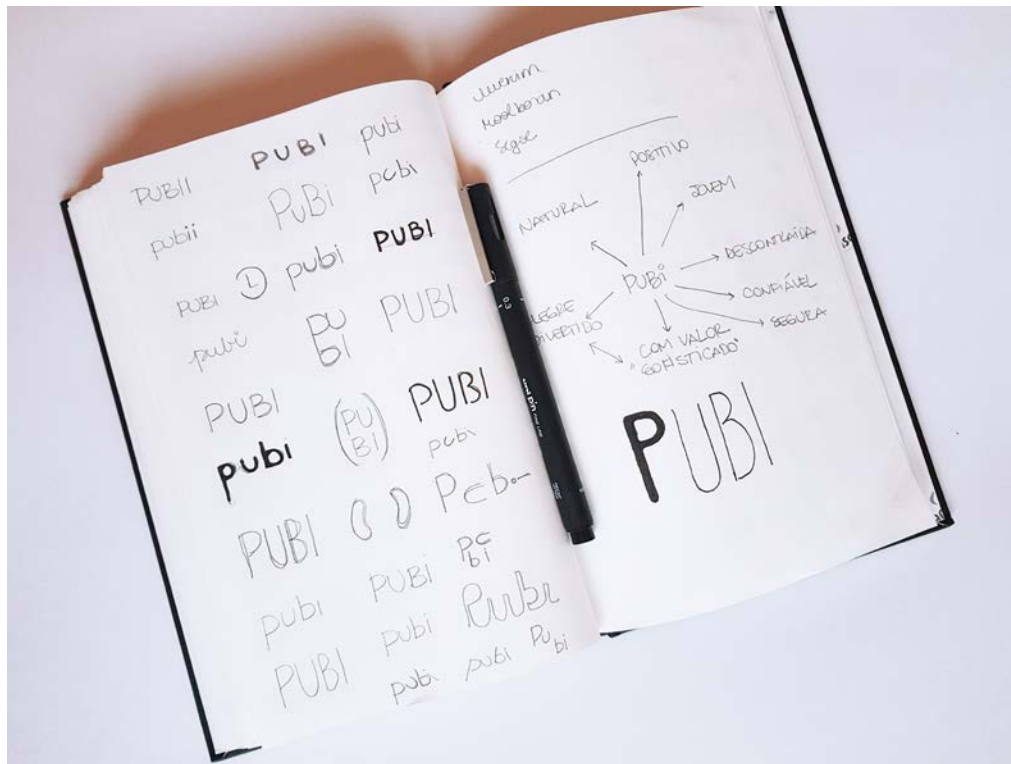 PUBII
PUBI
pubi
pubii
PUBi
pubi
PUBI
1
pubi
PUBI
pubi
pu
bi
PUBI
PUBI
(PU
BI)
PUBI
pubi
pubi
PUBI
Pcb
pubi
PUBI
pc
bi
PUBI
pubi
Pubi
pubi
pubi
Pu
bi
Segoe
POSITIVO
NATURAL
JOVEM
DESCONTRAÍDA
PUBi
CONFIÁVEL
SEGURA
ALEGRE
DIVERTIDO
COM VALOR
"SOFISTICADO"
PUBI
0.3
PIN
FINE LINE